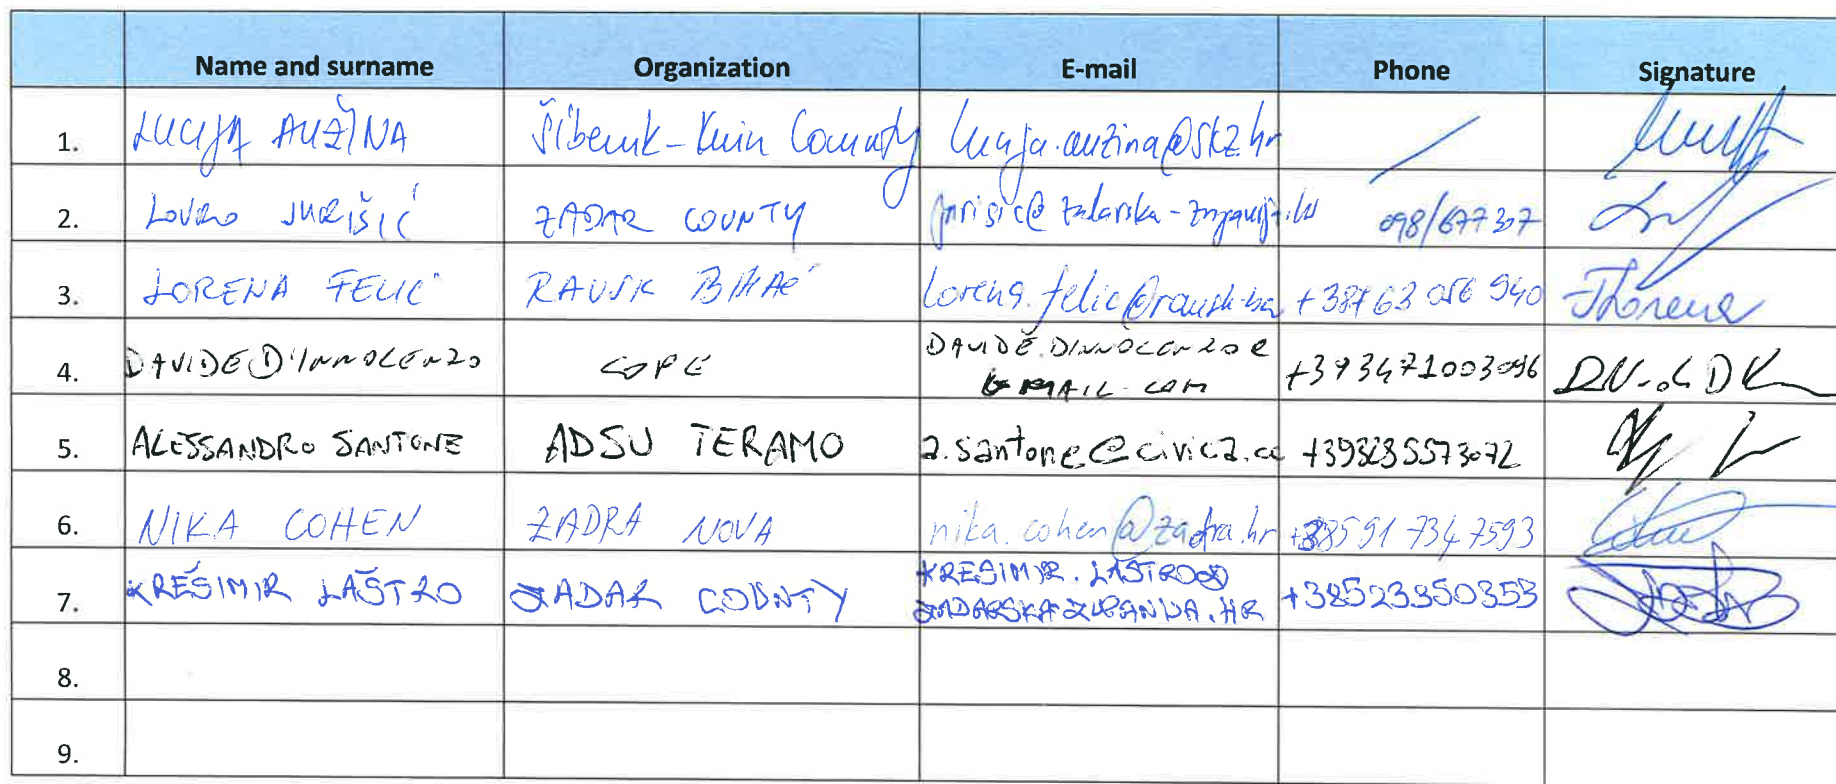 Name and surname Organization E-mail Phone Signature
1. LUCIJA AUŽINA Šibenik-Knin County lucija.auzina@skz.hr /
2. LOVRO JURIŠIĆ ZADAR COUNTY 098/677 307
3. LORENA FELIĆ RAUSK BIHAĆ lorena.felic@rausk.ba +387 63 056 940
4. DAVIDE D'INNOCENZO COPE DAVIDE.DINNOCENZO@
GMAIL.COM
5. ALESSANDRO SANTONE ADSU TERAMO a.santone@civica.cc
6. NIKA COHEN ZADRA NOVA nika.cohen@zadra.hr +385 91 734 7593
7. KREŠIMIR LAŠTRO ZADAR COUNTY KRESIMIR.LASTRO@
ZADARSKA-ZUPANIJA.HR +38523350353
8.
9.